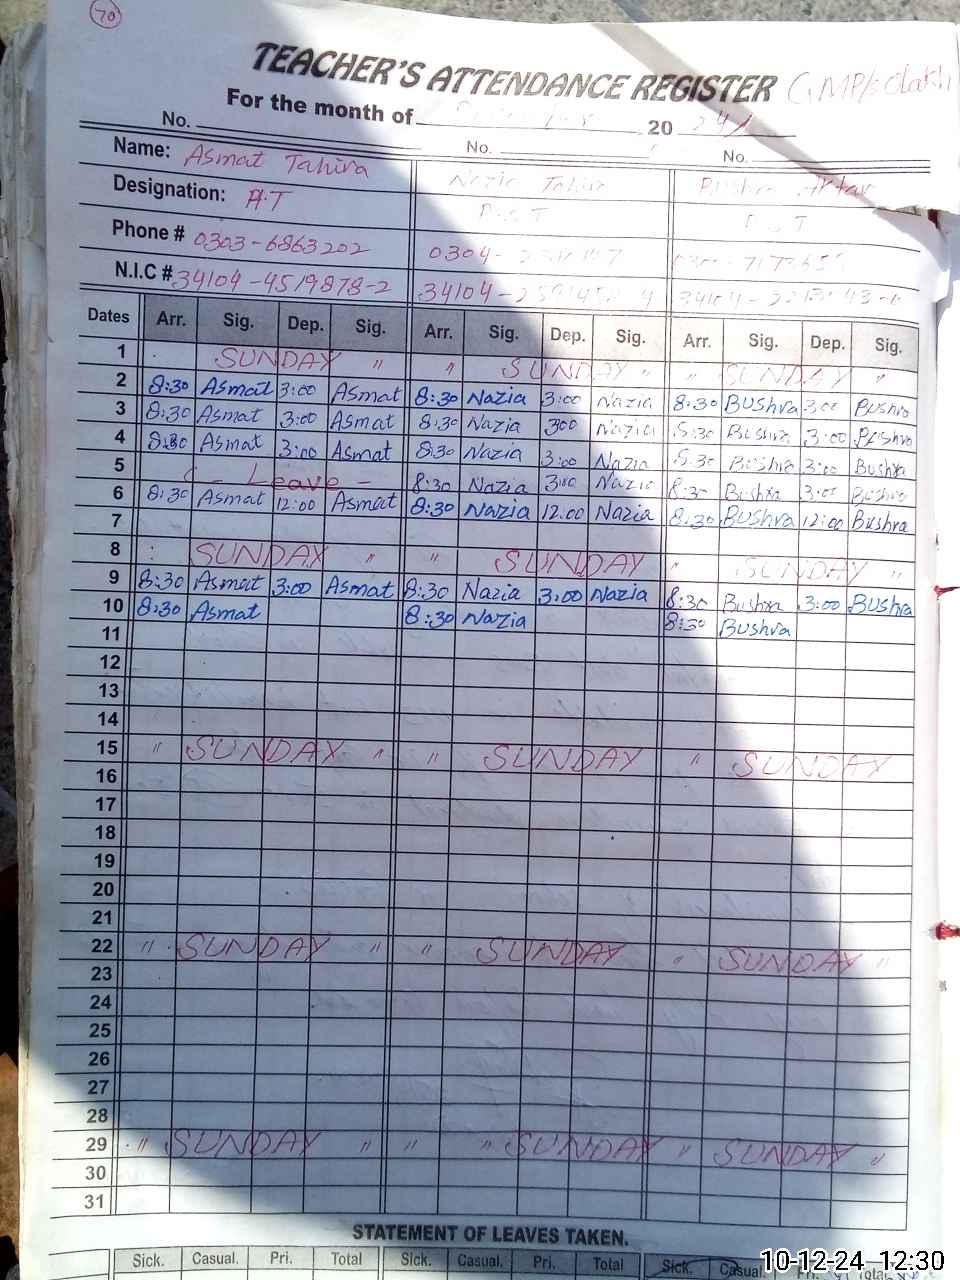 70
TEACHER'S ATTENDANCE REGISTER GMP/s
For the month of 20 24
No. No. No.
Name: Asmat Tahira Nazia Tahir Bushra
Designation: P.S.T
Phone # 0303-6863202 0304-
N.I.C # 34104-4519878-2 34104- 34104-
Dates Arr. Sig. Dep. Sig. Arr. Sig. Dep. Sig. Arr. Sig. Dep. Sig.
1 SUNDAY " " SUNDAY " " SUNDAY "
2 8:30 Asmat 3:00 Asmat 8:30 Nazia 3:00 Nazia 8:30 Bushra 3:00 Bushra
3 8:30 Asmat 3:00 Asmat 8:30 Nazia 300 Nazia 8:30 Bushra 3:00 Bushra
4 8:30 Asmat 3:00 Asmat 8:30 Nazia 3:00 Nazia 8:30 Bushra 3:00 Bushra
5 - Leave - 8:30 Nazia 3:00 Nazia 8:30 Bushra 3:00 Bushra
6 8:30 Asmat 12:00 Asmat 8:30 Nazia 12:00 Nazia 8:30 Bushra 12:00 Bushra
7
8 SUNDAY " " SUNDAY " SUNDAY "
9 8:30 Asmat 3:00 Asmat 8:30 Nazia 3:00 Nazia 8:30 Bushra 3:00 Bushra
10 8:30 Asmat 8:30 Nazia 8:30 Bushra
11
12
13
14
15 " SUNDAY " " SUNDAY " SUNDAY
16
17
18
19
20
21
22 " SUNDAY " " SUNDAY " SUNDAY "
23
24
25
26
27
28
29 " SUNDAY " " " SUNDAY " SUNDAY "
30
31
STATEMENT OF LEAVES TAKEN.
Sick. Casual. Pri. Total Sick. Casual. Pri. Total Sick. Casual. Pri. Total
10-12-24 12:30